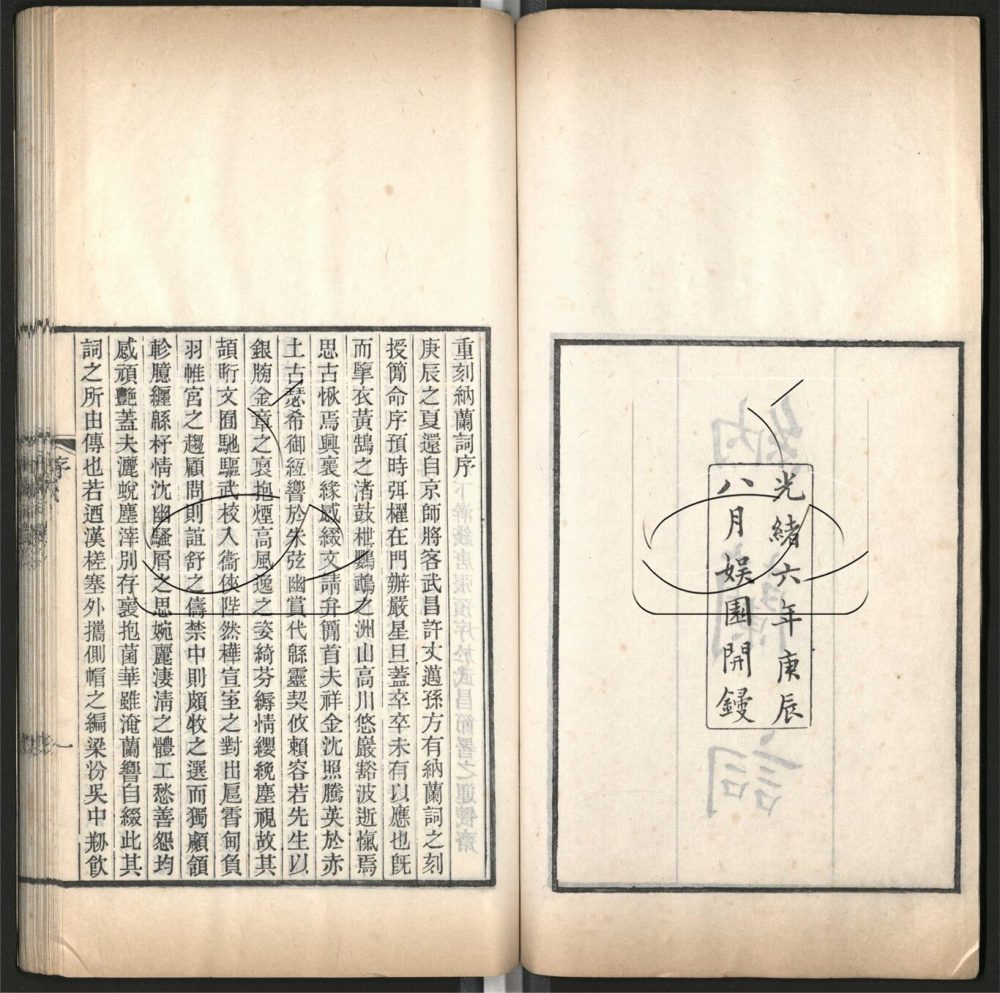 光緒六年庚辰
八月娛園開鋟
重刻納蘭詞序
庚辰之夏還自京師將客武昌許丈邁孫方有納蘭詞之刻
授簡命序預時弭櫂在門辦嚴星旦蓋卒卒未有以應也旣
而摩衣黃鵠之渚鼓枻鸚鵡之洲山高川悠巖豁波逝愾焉
思古愀焉興裏緣感綴文請弁簡首夫祥金沈照騰英於赤
土古瑟希御縆響於朱弦幽賞代緜靈契攸賴容若先生以
銀牓金章之裏抱煙高風逸之姿綺芬縟情纓綩塵視故其
頡䀪文囿馳驅武校入衞俠陛然樺宣室之對出扈霄甸負
羽帷宮之趨顧問則誼舒之儔禁中則頗牧之選而獨顑頷
軫臆纏緜杼情沈幽騷屑之思婉麗淒淸之體工愁善怨均
感頑艷蓋夫灑蛻塵滓別存裏抱菌華雖淹蘭響自綴此其
詞之所由傳也若迺漢槎塞外攜側帽之編梁汾吳中刱飮
序